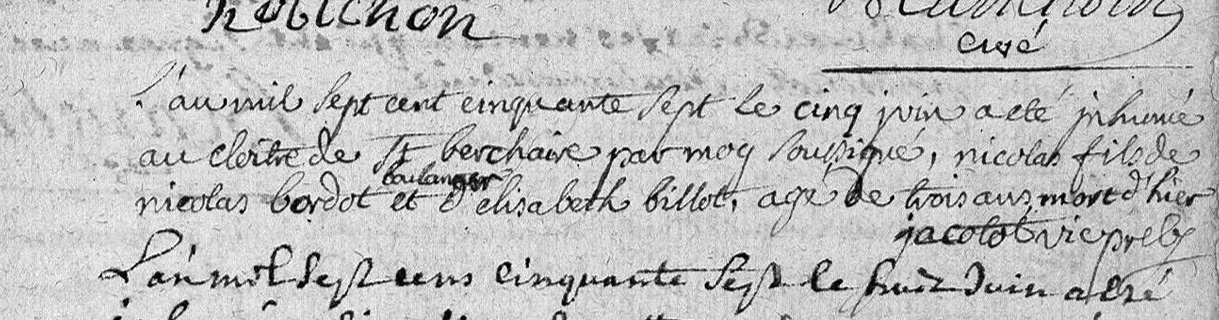 Robichon
curé
L'an mil sept cent cinquante sept le cinq juin a eté jnhumé
au cloitre de St berchaire par moy soussigné, nicolas fils de
boulanger
nicolas bordot et d'elisabeth billot, agé de trois ans, mort d'hier
jacotot vic prebs
L'an mil sept cens cinquante sept le huit Juin a eté